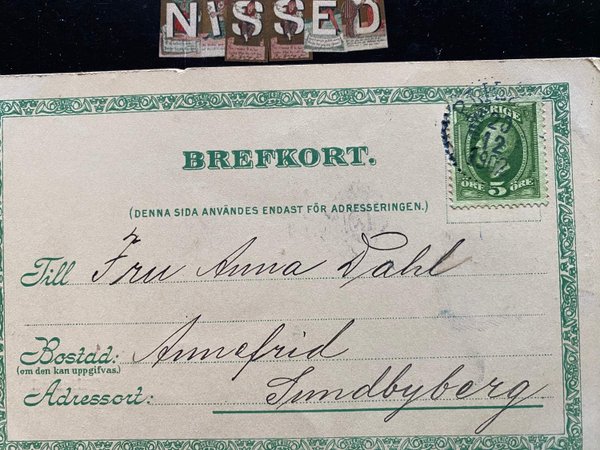 NISSED
BREFKORT.
(DENNA SIDA ANVÄNDES ENDAST FÖR ADRESSERINGEN.)
SVERIGE
28
12
1902
ÖRE 5 ÖRE
Till Fru Anna Dahl
Bostad: Annefrid
(om den kan uppgifvas.)
Adressort: Sundbyberg